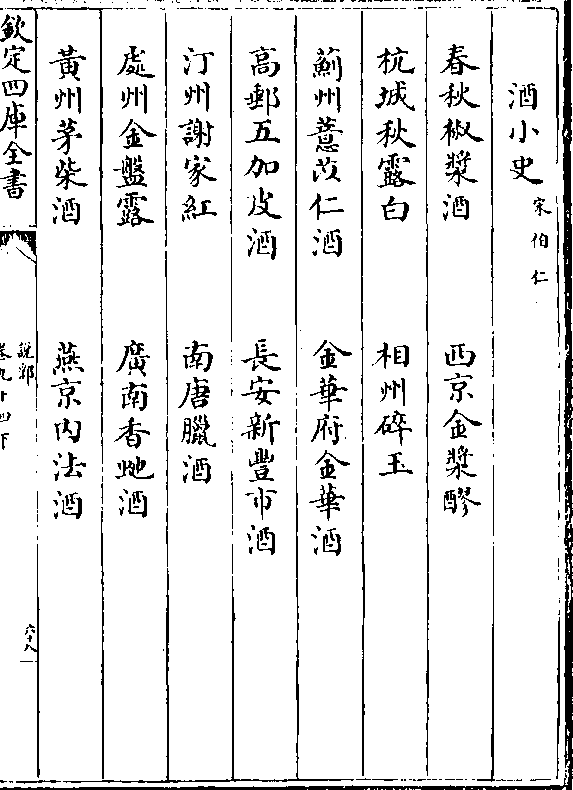 酒小史
宋伯仁
春秋椒漿酒 西京金漿醪
杭城秋露白 相州碎玉
薊州薏苡仁酒 金華府金華酒
高郵五加皮酒 長安新豐市酒
汀州謝家紅 南唐臘酒
處州金盤露 廣南香虵酒
黃州茅柴酒 燕京内法酒
欽定四庫全書
說郛
卷九十四下
六十八